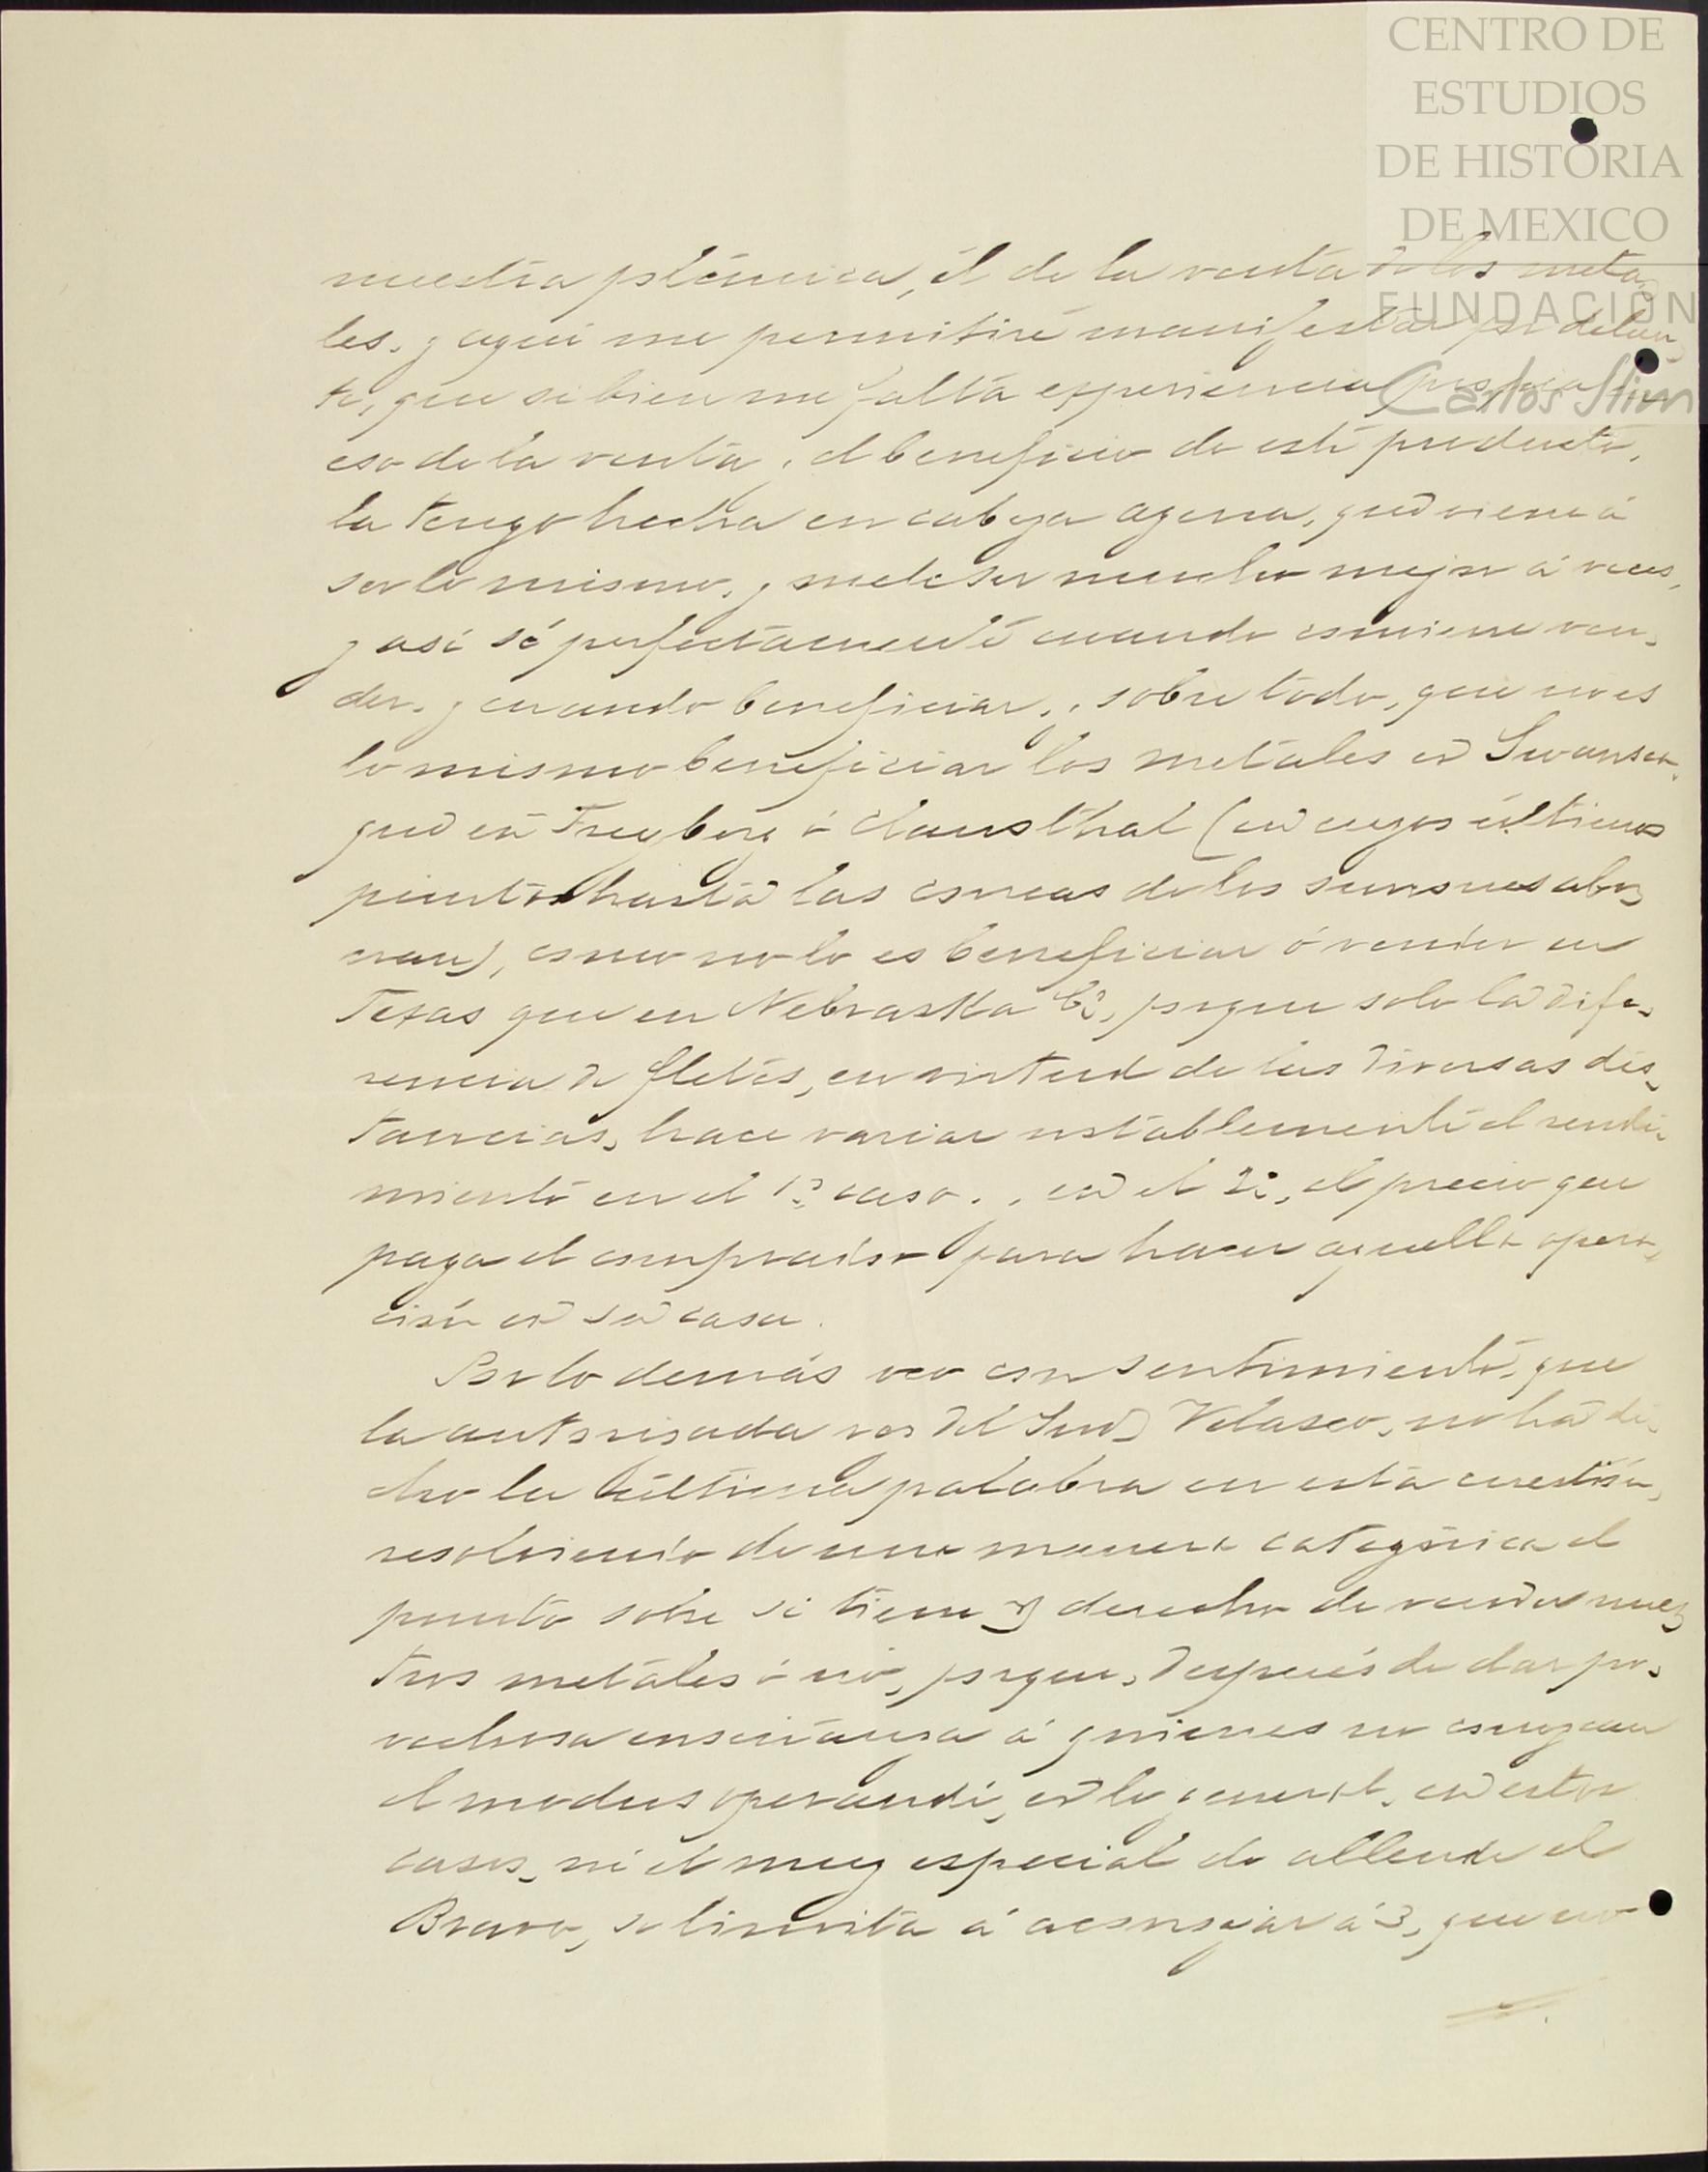 CENTRO DE
ESTUDIOS
DE HISTORIA
DE MEXICO
FUNDACIÓN
Carlos Slim
nuestra polémica, él de la venta de los meta-
les. y aqui me permitiré manifestar por delan-
te, que si bien me falta experiencia propia en
eso de la venta y el beneficio de este producto,
la tengo hecha en cabeza agena, que viene á
ser lo mismo, y suele ser mucho mejor á veces,
y asi sé perfectamente cuando conviene ven-
der. y cuando beneficiar, y sobre todo, que no es
lo mismo beneficiar los metales en Swansea,
que en Freyberg ó Clausthal (en cuyos últimos
puntos hasta las
), como no lo es beneficiar ó vender en
Texas que en Nebraska &, porque solo la dife-
rencia de fletes, en virtud de las diversas dis-
tancias, hace variar notablemente el rendi-
miento en el 1º caso. y en el 2º, el precio que
paga el comprador para hacer aquella opera-
ción en su casa.
Por lo demás veo con sentimiento, que
la autorisada voz del Velasco, no ha di-
cho la última palabra en esta cuestión,
resolviendo de una manera categórica el
punto sobre si tiene derecho de vender nues-
tros metales ó nó, porque, después de dar pro-
vechosa enseñanza á quienes no conozcan
el modus operandi, en lo general, en estos
casos, ni el muy especial de allende el
Bravo, se limita á aconsejar á, que no